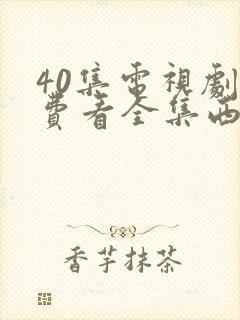 40集電視劇
費看全集西
香芋抹茶